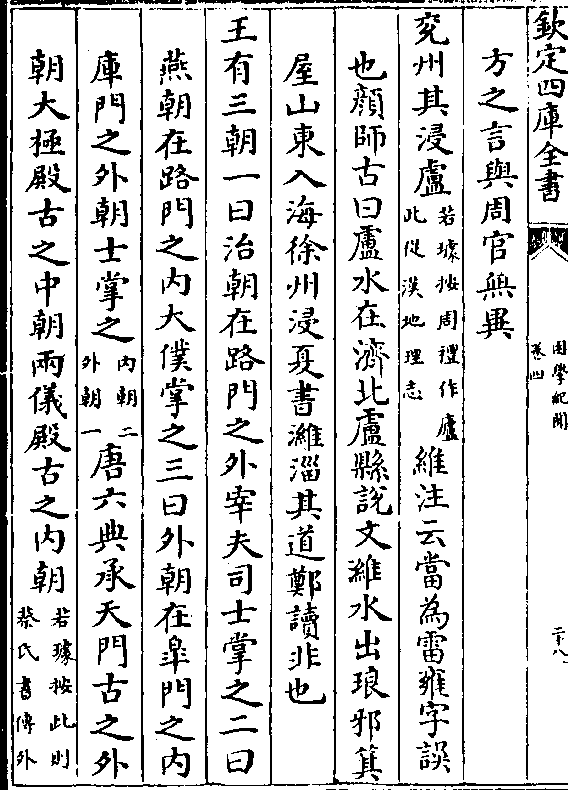 欽定四庫全書
困學紀聞
卷四
二十八
方之言與周官無異
兖州其浸盧若璩按周禮作廬此從漢地理志維注云當為雷雍字誤
也顔師古曰盧水在濟北盧縣說文維水出琅邪箕
屋山東入海徐州浸夏書濰淄其道鄭讀非也
王有三朝一曰治朝在路門之外宰夫司士掌之二曰
燕朝在路門之内大僕掌之三曰外朝在臯門之内
庫門之外朝士掌之内朝二外朝一唐六典承天門古之外
朝大極殿古之中朝兩儀殿古之内朝若璩按此則蔡氏書傳外